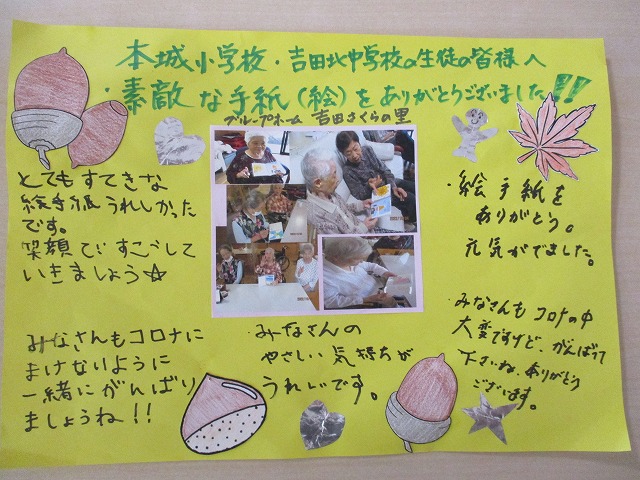 本城小学校・吉田北中学校の生徒の皆様へ
・素敵な手紙(絵)をありがとうございました!!
グループホーム 吉田さくらの里
とてもすてきな
絵手紙うれしかった
です。
笑顔ですごして
いきましょう☆
・絵手紙を
ありがとう。
元気がでました。
みなさんもコロナに
まけないように
一緒にがんばり
ましょうね!!
・みなさんの
やさしい気持ちが
うれしいです。
・みなさんもコロナの中
大変ですけど、がんばって
下さいね、ありがとう
ございます。